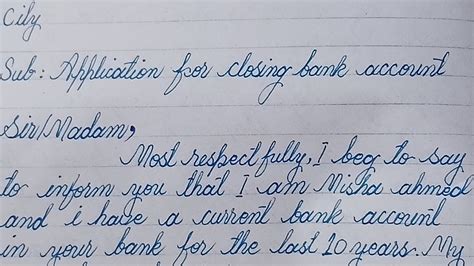 City
Sub: Application for closing bank account
Sir/Madam,
Most respectfully, I beg to say
to inform you that I am Misha ahmed
and i have a current bank account
in your bank for the last 10 years. My